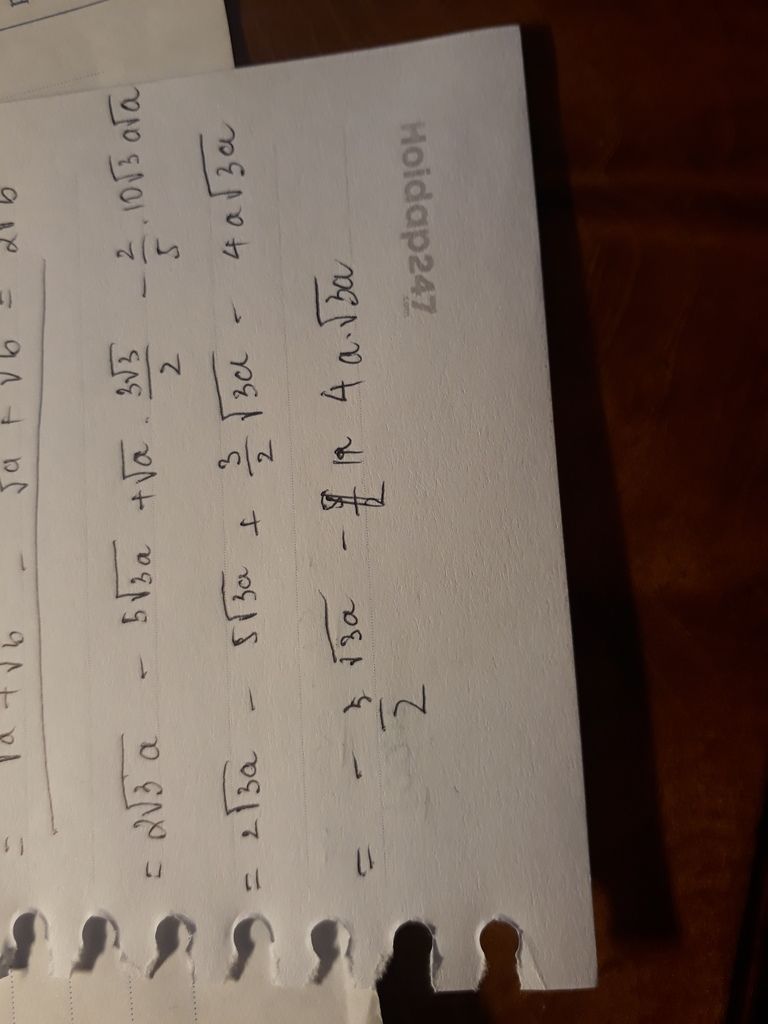 = √a + √b - √a + √b = 2√b
= 2√3a - 5√3a + √a · 3√3/2 - 2/5 · 10√3 a√a
= 2√3a - 5√3a + 3/2 √3a - 4a√3a
= - 3/2 √3a - 4a·√3a
Hoidap247
.com